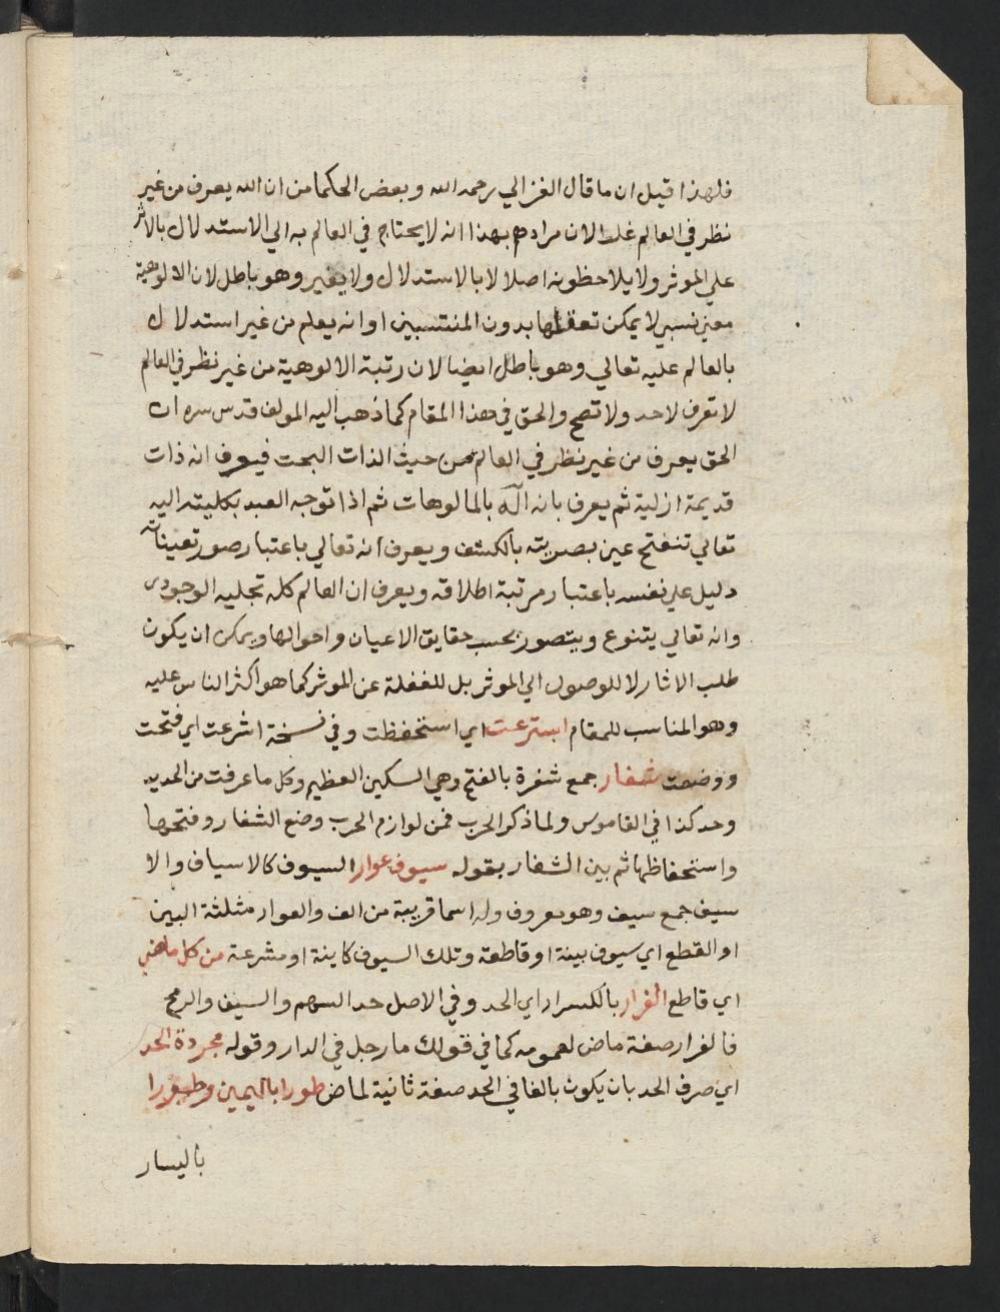 فلهذا قيل ان ما قال الغزالي رحمه الله وبعض الحكما من ان الله يعرف من غير
نظر في العالم غلط لان مرادهم بهذا انه لا يحتاج في العالم به الي الاستدلال بالاثر
علي الموثر ولا يلاحظونه اصلا لا بالاستدلال ولا بغير وهو باطل لان الالوهية
معني نسبي لا يمكن تعقلها بدون المنتسبين او انه يعلم من غير استدلال
بالعالم عليه تعالي وهو باطل ايضا لان رتبة الالوهية من غير نظر في العالم
لا تعرف لاحد ولا تصح والحق في هذا المقام كما ذهب اليه المولف قدس سره ان
الحق يعرف من غير نظر في العالم من حيث الذات البحت فيعرف انه ذات
قديمة ازلية ثم يعرف بانه اله بالمالوهات ثم اذا توجه العبد بكليته اليه
تعالي تنفتح عين بصيرته بالكشف ويعرف انه تعالي باعتبار صور تعيناته
دليل علي نفسه باعتبار مرتبة اطلاقه ويعرف ان العالم كله تجليه الوجودي
وانه تعالي يتنوع ويتصور بحسب حقايق الاعيان واحوالها ويمكن ان يكون
طلب الاثار لا للوصول الي الموثر بل للغفلة عن الموثر كما هو اكثر الناس عليه
وهو المناسب للمقام استرعت اي استحفظت وفي نسخة اشرعت اي فتحت
ووضعت شفار جمع شفرة بالفتح وهي السكين العظيم وكل ما عرفت من الحديد
وحد كذا في القاموس ولما ذكر الحرب فمن لوازم الحرب وضع الشفار وفتحها
واستحفاظها ثم بين الشفار بقوله سيوف عوار السيوف كالاسياف والا
سيف جمع سيف وهو معروف وله اسما قريبة من الف والعوار مثلثة البين
او القطع اي سيوف بينة او قاطعة وتلك السيوف كاينة او مشرعة من كل ماضي
اي قاطع الغرار بالكسر اي الحد وفي الاصل حد السهم والسيف والرمح
فالغرار صفة ماض لعمومه كما في قولك ما رجل في الدار وقوله مجردة الحد
اي صرف الحد بان يكون بالغا في الحد صفة ثانية لماض طورا باليمين وطورا
باليسار